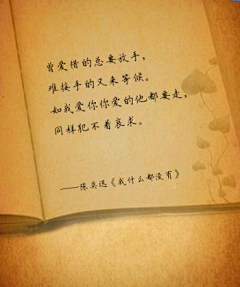 曾爱惜的总要放手，
难接手的又来等候。
如我爱你你爱的他都要走，
同样犯不着哀求。
——陈奕迅《我什么都没有》